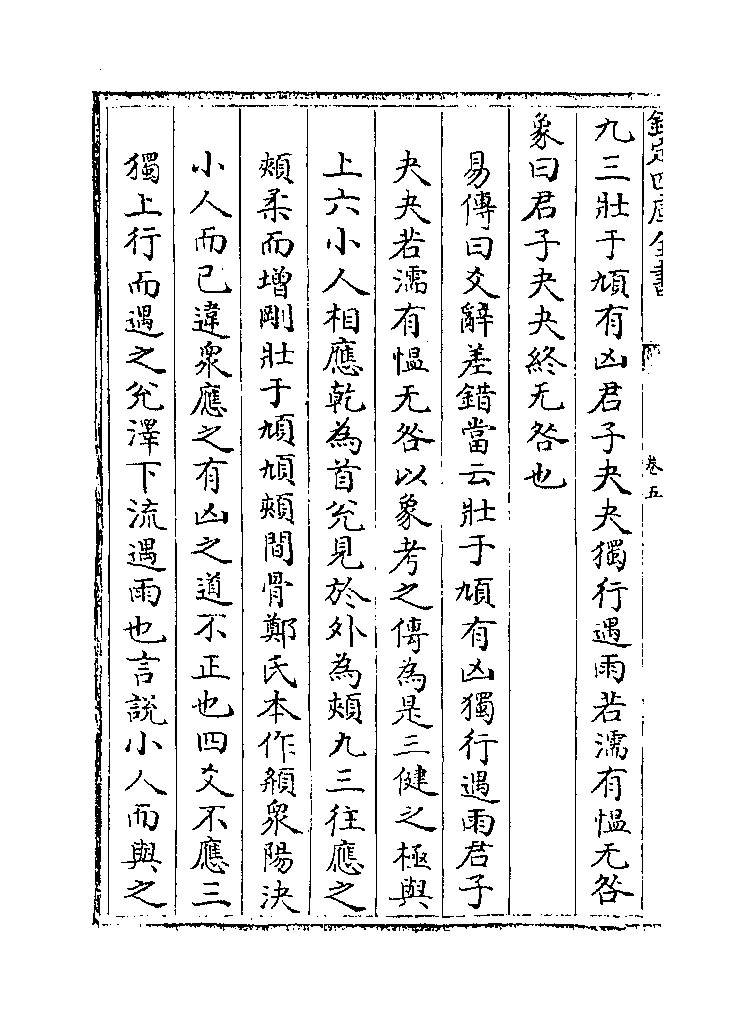 欽定四庫全書
卷五
九三壯于頄有凶君子夬夬獨行遇雨若濡有愠无咎
象曰君子夬夬終无咎也
易傳曰爻辭差錯當云壯于頄有凶獨行遇雨君子
夬夬若濡有愠无咎以象考之傳為是三健之極與
上六小人相應乾為首兊見於外為頰九三往應之
頰柔而增剛壯于頄頄頰間骨鄭氏本作頯衆陽決
小人而己違衆應之有凶之道不正也四爻不應三
獨上行而遇之兊澤下流遇雨也言說小人而與之